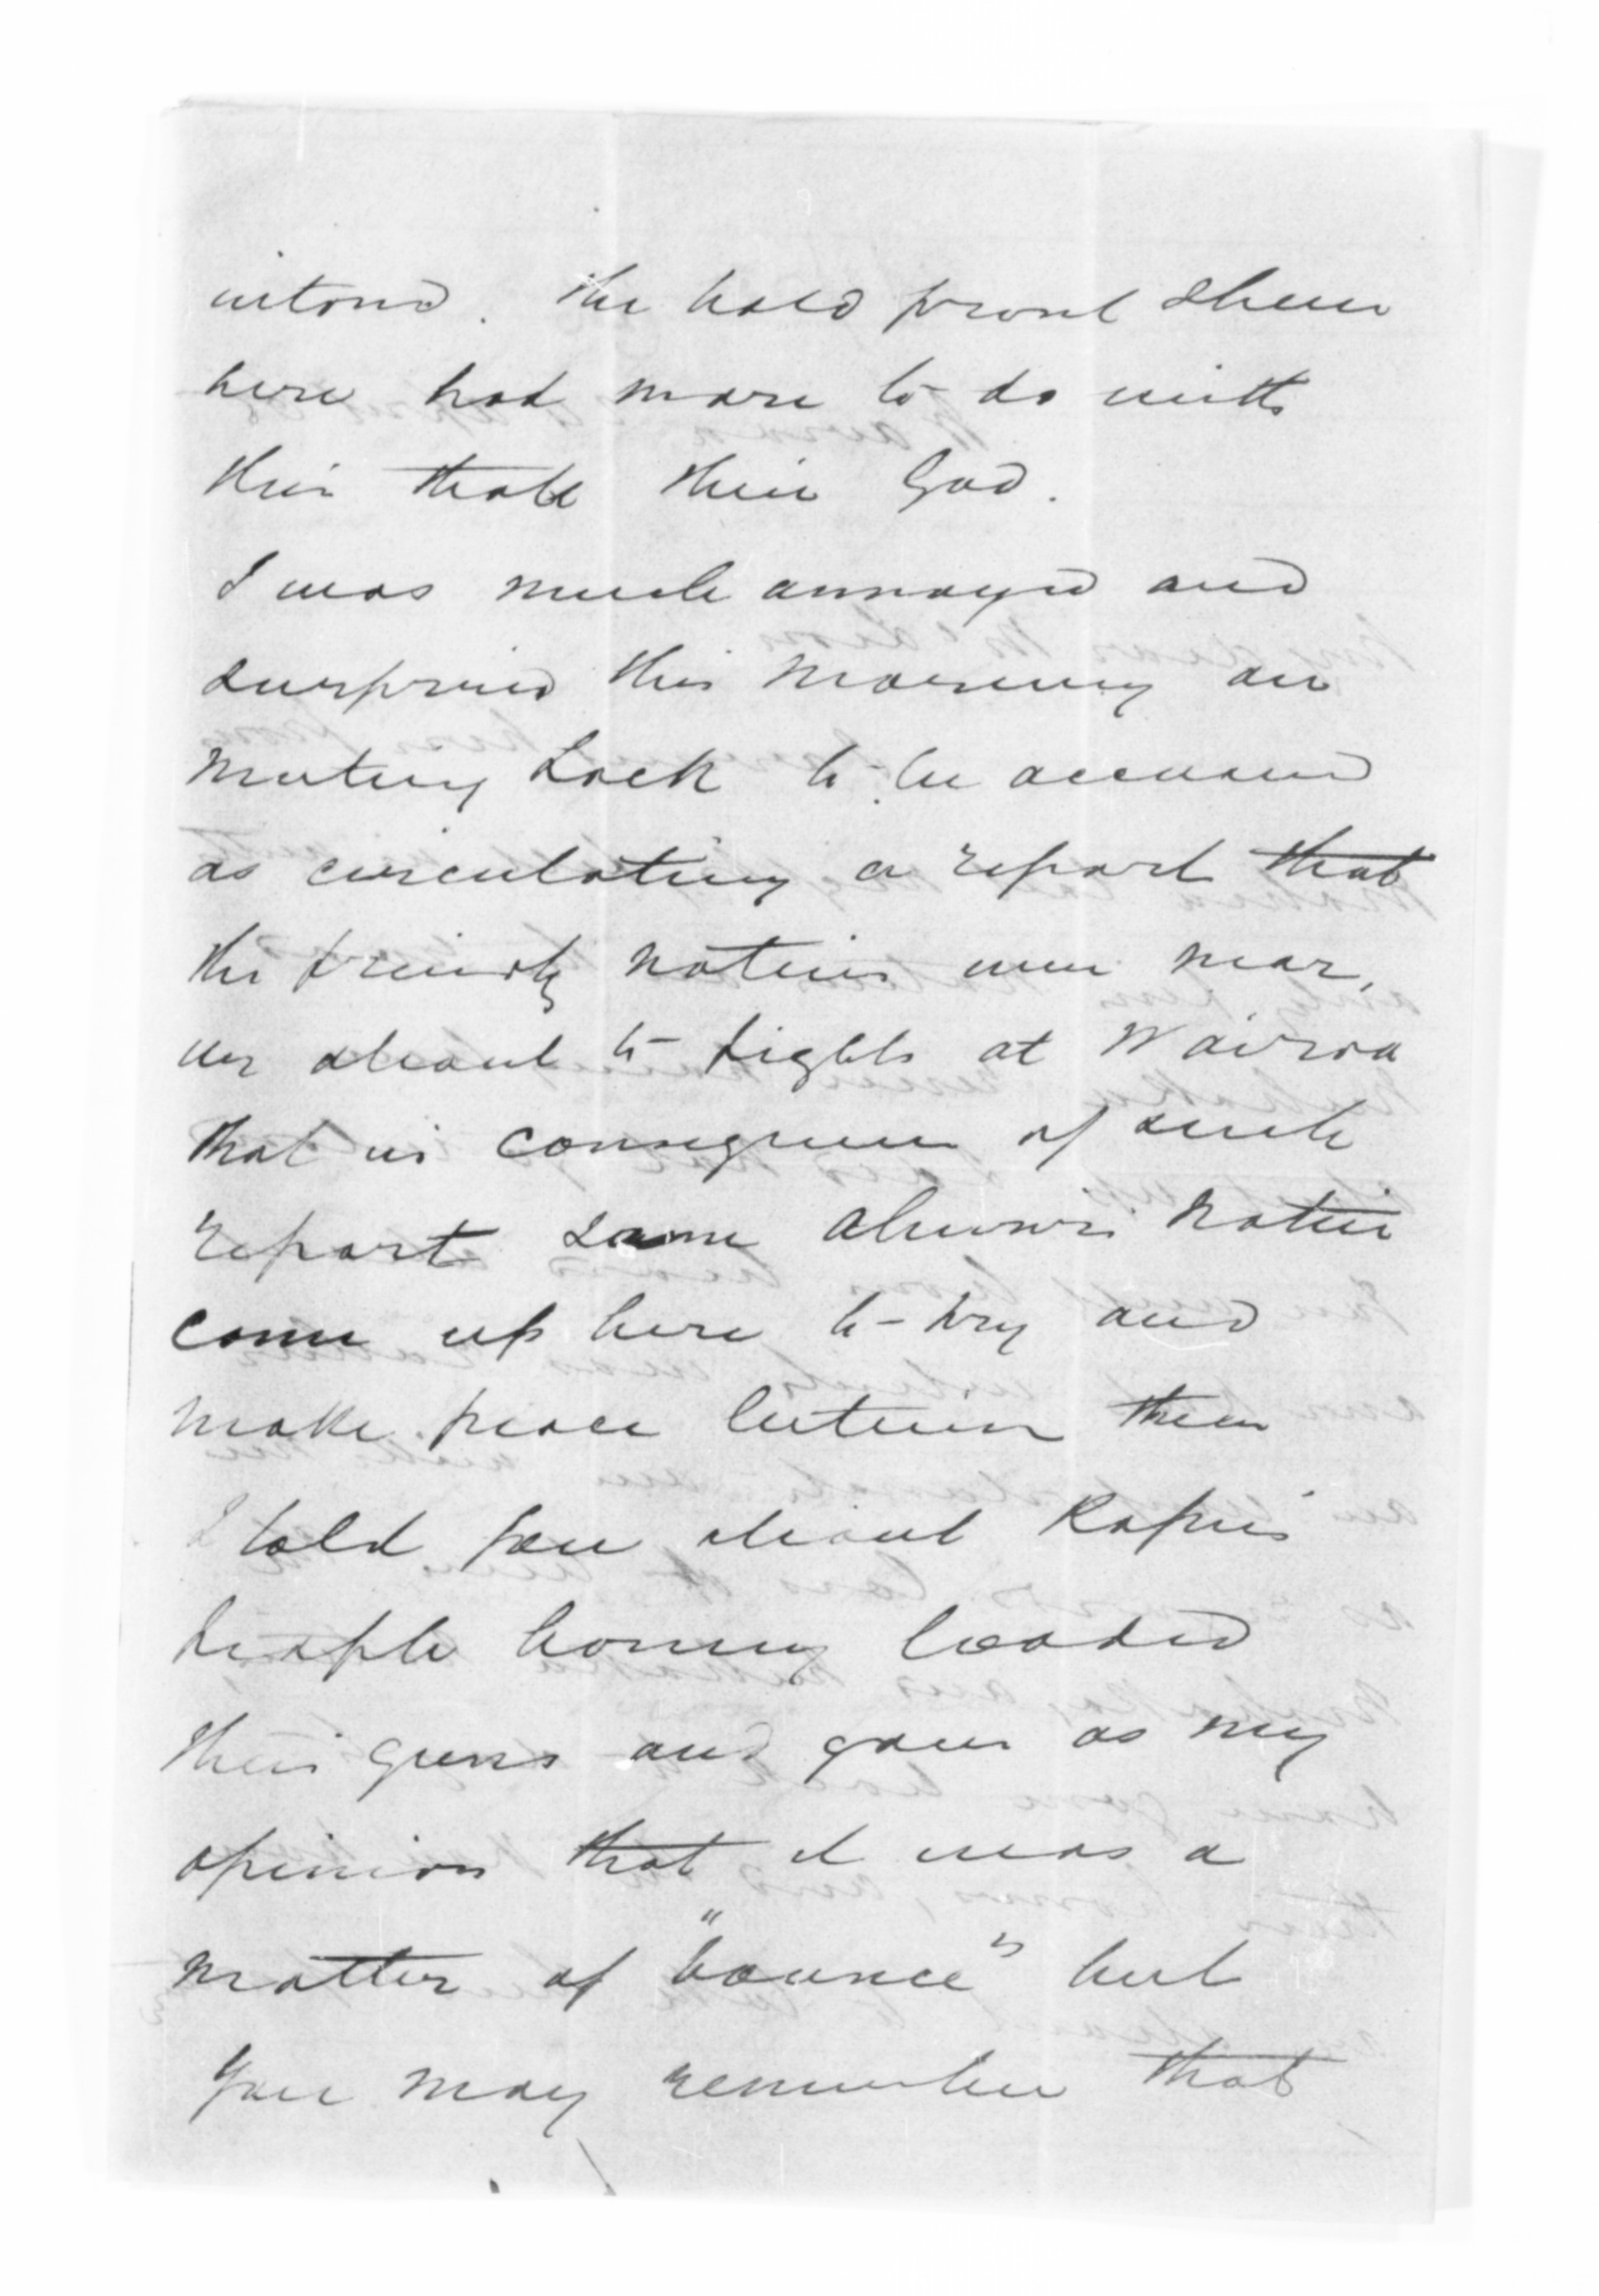 intond. The bold front shewn
here had more to do with
this than their God.
I was much annoyed and
surprised this morning on
meeting Lock to be accused
as circulating a report that
the friendly natives were near
ly about to fight at Wairoa
that in consequence of such
report some Ahuriri Natives
come up here to try and
make peace between them
I told you about Kopu's
people having loaded
their guns and gave as my
opinion that it was a
matter of "bounce" but
You may remember that